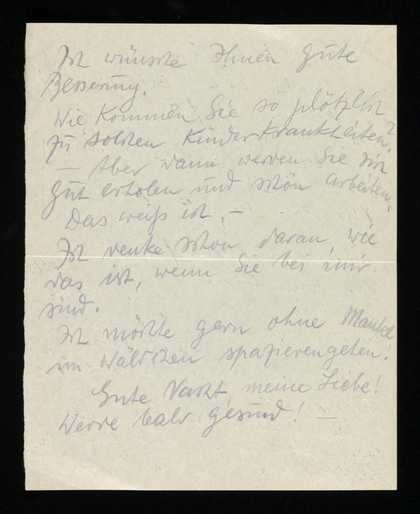 Ich wünsche Ihnen gute
Besserung.
Wie kommen Sie so plötzlich
zu solchen Kinderkrankheiten?
– Aber dann werden Sie sich
gut erholen und schön arbeiten.
Das weiß ich. –
Ich denke schon daran, wie
das ist, wenn Sie bei mir
sind.
Ich möchte gern ohne Mantel
im Wäldchen spazierengehen.
Gute Nacht meine Liebe!
Werde bald gesund! –